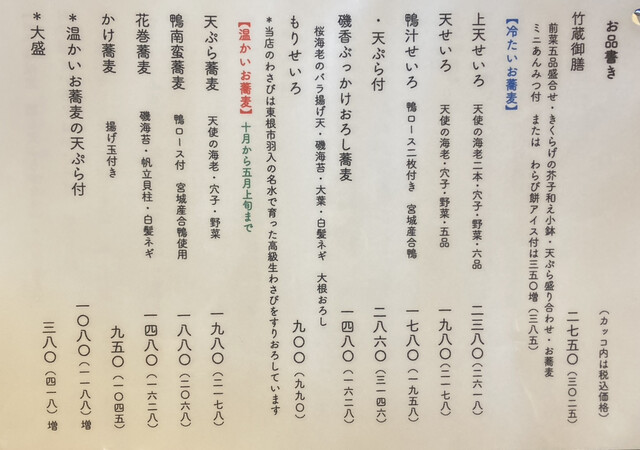 お品書き
（カッコ内は税込価格）
竹蔵御膳　二七五〇（三〇二五）
前菜五品盛合せ・きくらげの芥子和え小鉢・天ぷら盛り合わせ・お蕎麦
ミニあんみつ付　または　わらび餅アイス付は三五〇増（三八五）
【冷たいお蕎麦】
上天せいろ　天使の海老二本・穴子・野菜・六品　二三八〇（二六一八）
天せいろ　天使の海老・穴子・野菜・五品　一九八〇（二一七八）
鴨汁せいろ　鴨ロース二枚付き　宮城産合鴨　一七八〇（一九五八）
・天ぷら付　二八六〇（三一四六）
磯香ぶっかけおろし蕎麦　一四八〇（一六二八）
桜海老のバラ揚げ天・磯海苔・大葉・白髪ネギ　大根おろし
もりせいろ　九〇〇（九九〇）
＊当店のわさびは東根市羽入の名水で育った高級生わさびをすりおろしています
【温かいお蕎麦】十月から五月上旬まで
天ぷら蕎麦　天使の海老・穴子・野菜　一九八〇（二一七八）
鴨南蛮蕎麦　鴨ロース付　宮城産合鴨使用　一八八〇（二〇六八）
花巻蕎麦　磯海苔・帆立貝柱・白髪ネギ　一四八〇（一六二八）
かけ蕎麦　揚げ玉付き　九五〇（一〇四五）
＊温かいお蕎麦の天ぷら付　一〇八〇（一一八八）増
＊大盛　三八〇（四一八）増